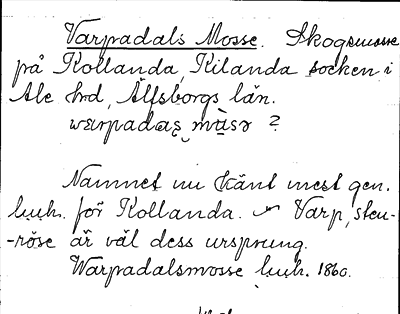 Varpadals Mosse. Skogsmosse
på Kollanda, Kilanda socken i
Ale hrd, Älfsborgs län.
warpadaꞩ mùsə ?
Namnet nu känt mest gen.
luuk. för Kollanda. Varp, sten-
-röse är väl dess ursprung.
Warpadalsmosse luuk. 1860.